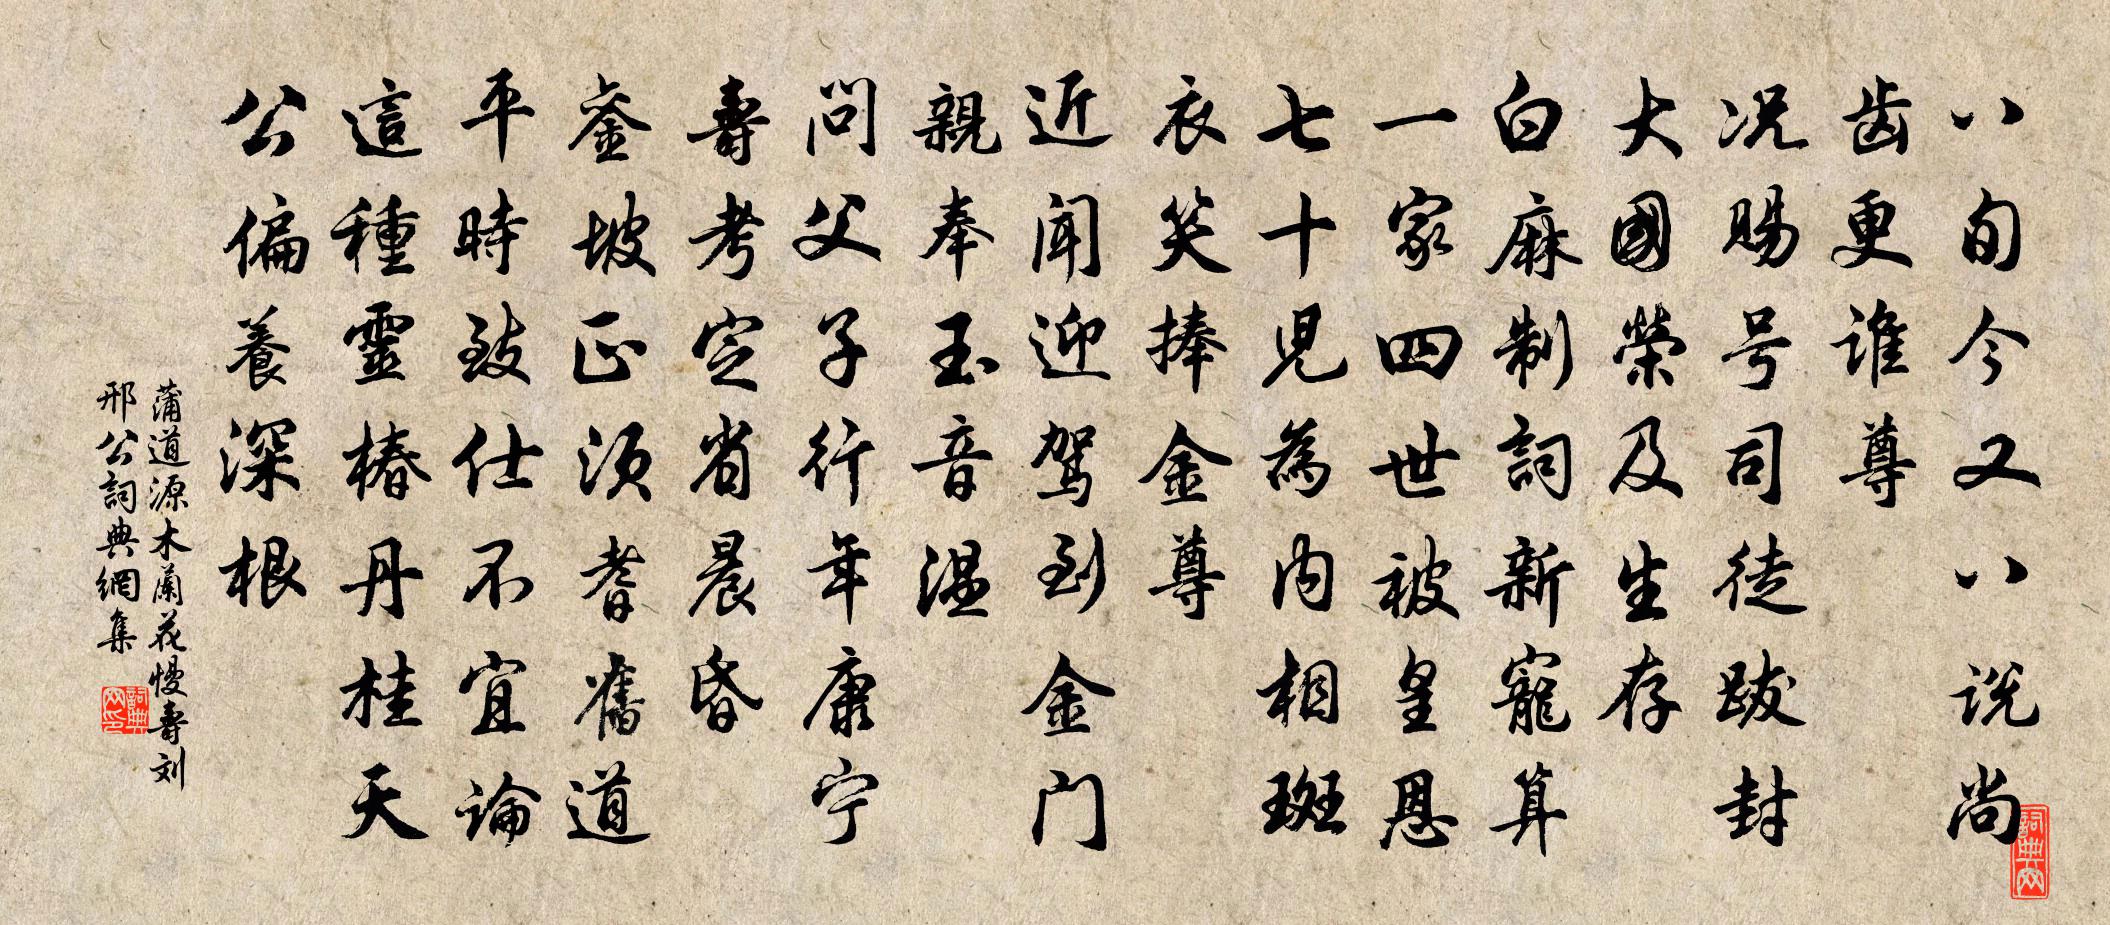 八旬今又八说尚
齿更谁尊
况赐号司徒跋封
大國榮及生存
白麻制詞新寵算
一家四世被皇恩
七十見為内相斑
衣笑捧金尊
近闻迎驾到金门
親奉玉音温
问父子行年康宁
壽考定省晨昏
銮坡正须耆舊道
平時致仕不宜論
這種靈椿丹桂天
公偏養深根
蒲道源木蘭花慢壽刘
邢公詞典網集
詞典网
詞典网印